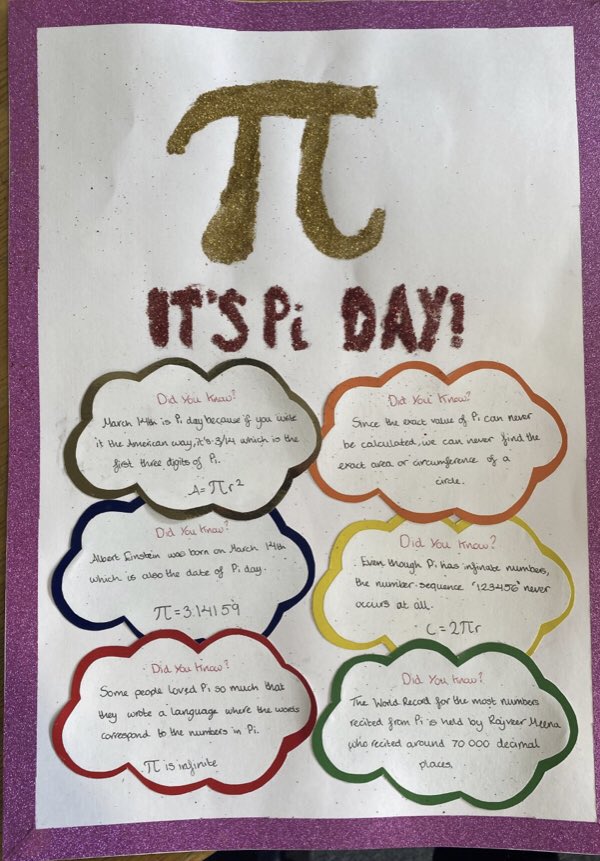 π
IT'S Pi DAY!
Did You Know?
March 14th is Pi day because if you write
it the American way, it's 3/14 which is the
first three digits of Pi.
A=πr²
Did You Know?
Since the exact value of Pi can never
be calculated, we can never find the
exact area or circumference of a
circle.
Did You Know?
Albert Einstein was born on March 14th
which is also the date of Pi day.
π=3.14159
Did You Know?
Even though Pi has infinite numbers,
the number sequence '123456' never
occurs at all.
C=2πr
Did You Know?
Some people loved Pi so much that
they wrote a language where the words
correspond to the numbers in Pi.
π is infinite
Did You Know?
The World Record for the most numbers
recited from Pi is held by Rajveer Meena
who recited around 70 000 decimal
places.